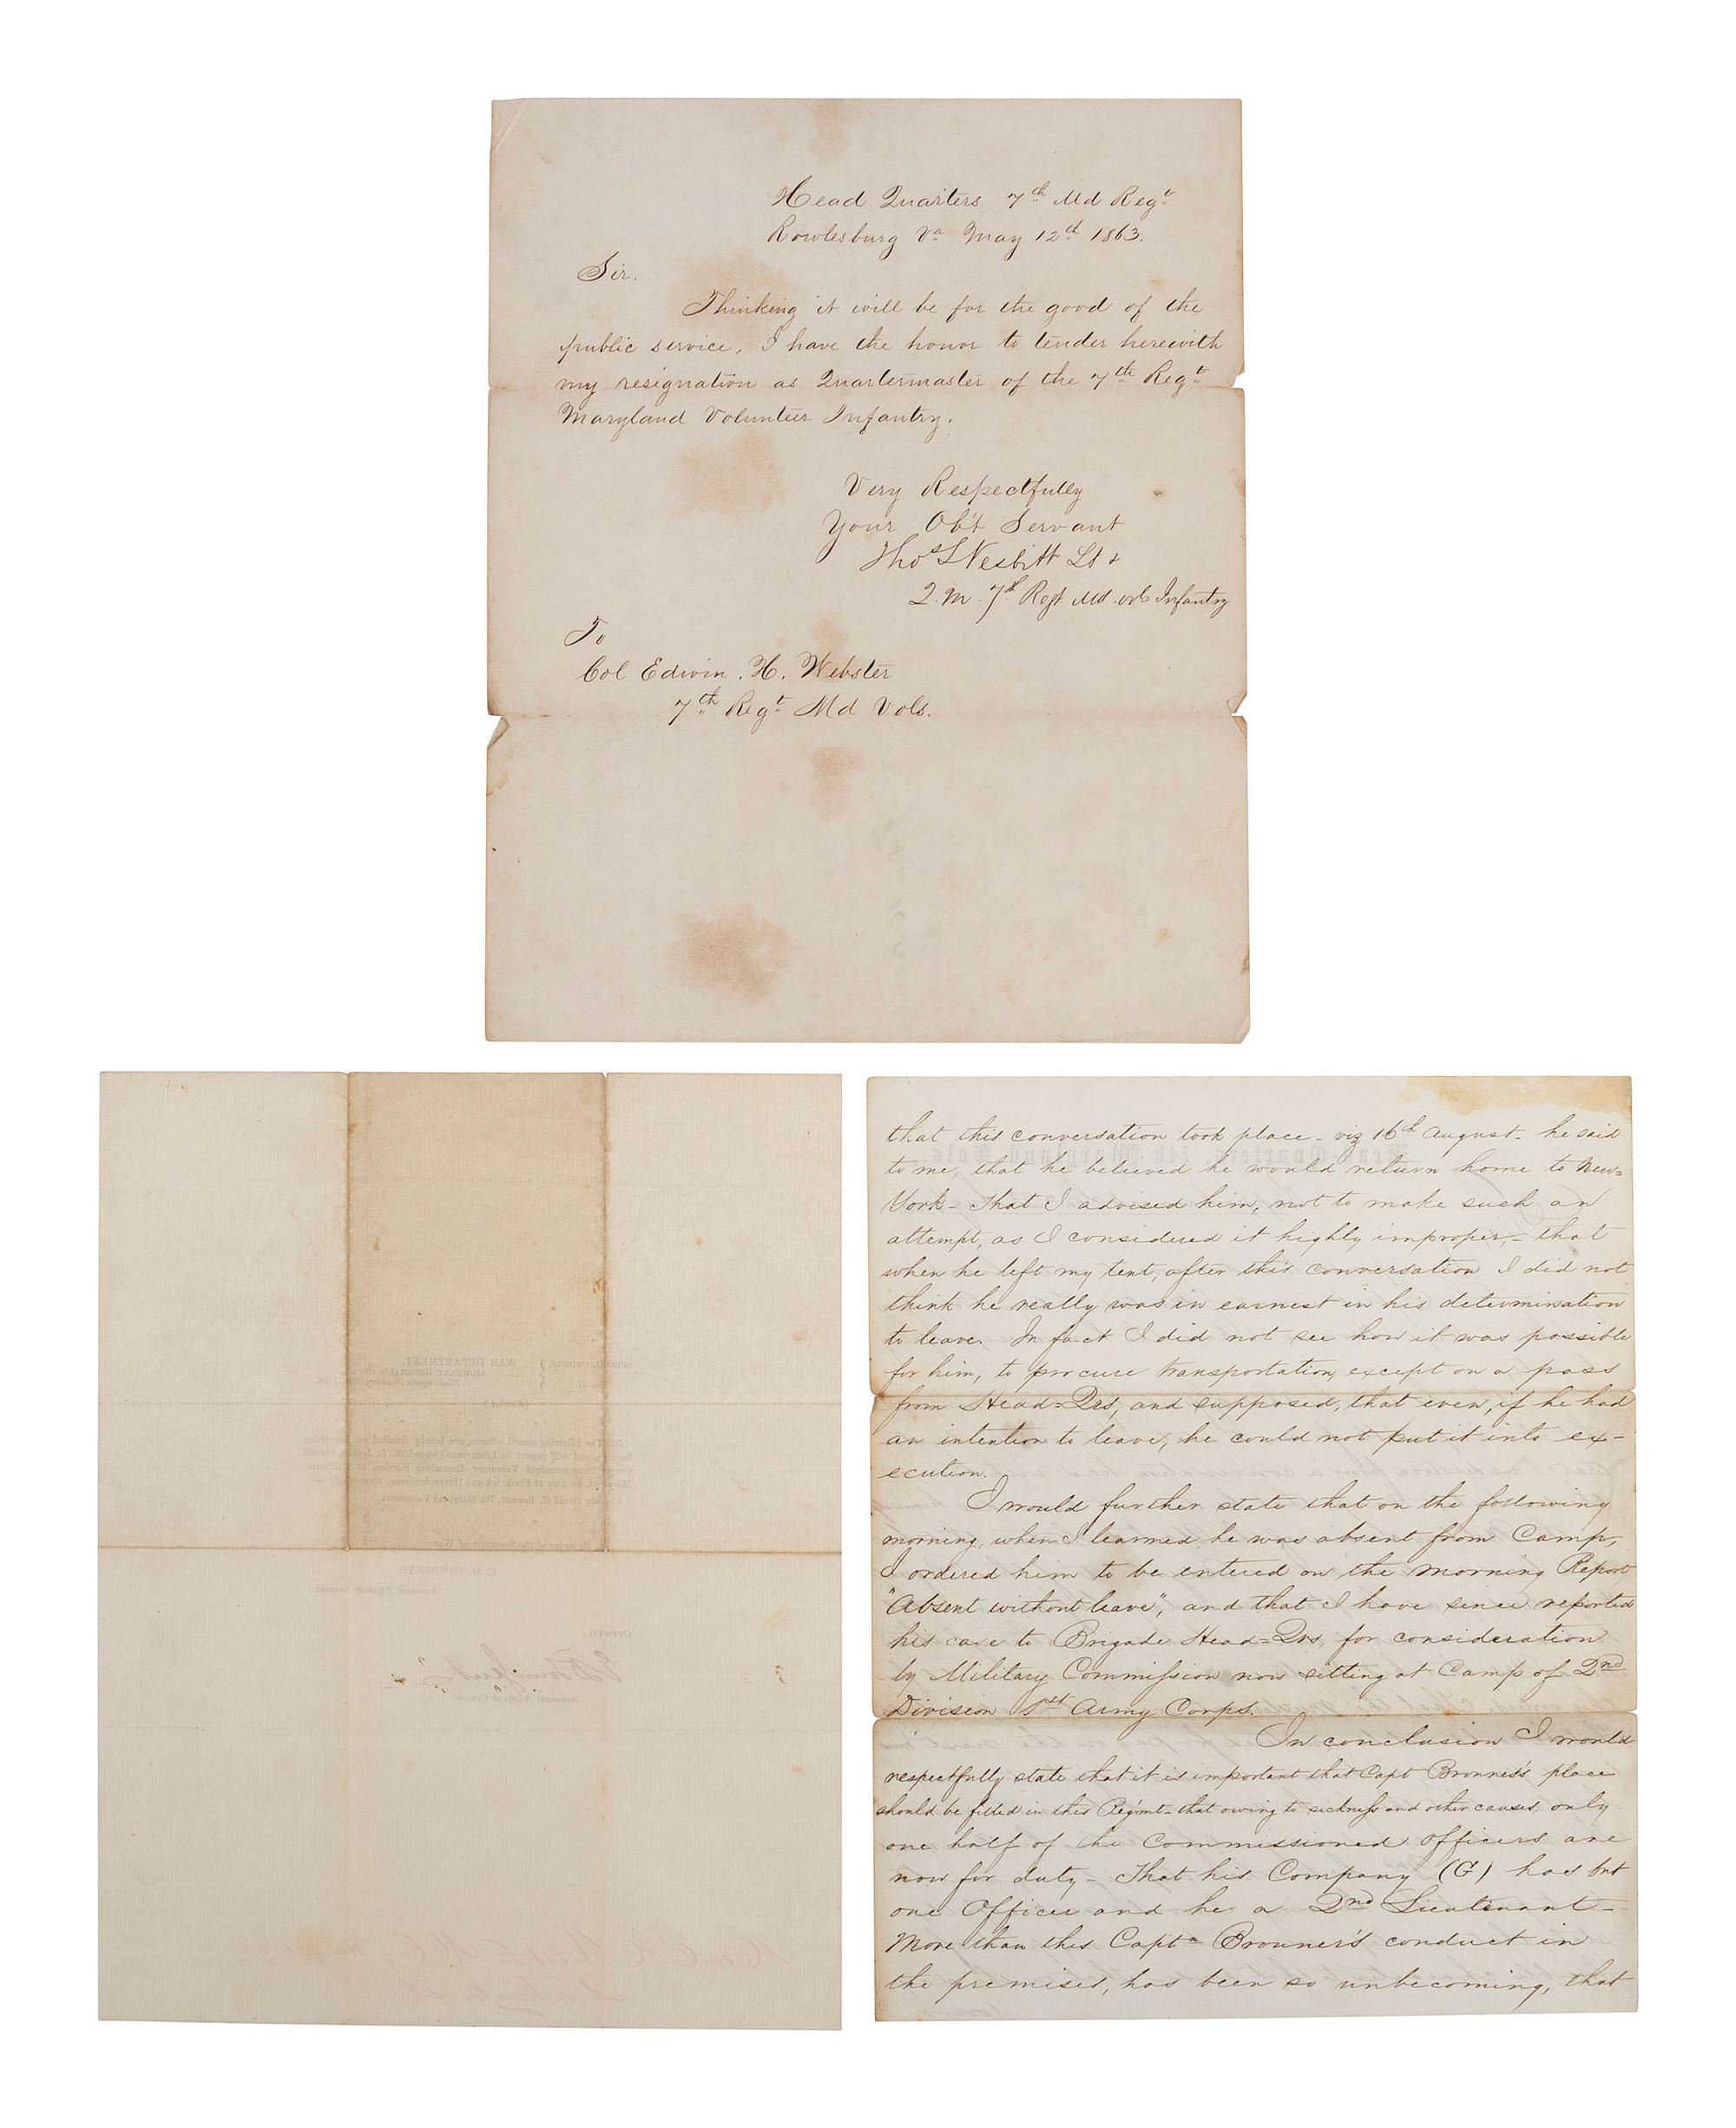 Head Quarters 7th Md Regt
Rowlesburg Va May 12th 1863.
Sir.
Thinking it will be for the good of the
public service, I have the honor to tender herewith
my resignation as Quartermaster of the 7th Regt
Maryland Volunteer Infantry.
Very Respectfully
Your Obt Servant
Thos L Nesbitt Lt &
Q.M. 7th Regt Md vols Infantry
To
Col Edwin. H. Webster
7th Regt Md Vols.
WAR DEPARTMENT,
E. D. TOWNSEND
Assistant Adjutant General
OFFICIAL:
Assistant Adjutant General
that this conversation took place - viz 16th August - he said
to me, that he believed he would return home to New=
York - That I advised him, not to make such an
attempt, as I considered it highly improper, - that
when he left my tent, after this conversation I did not
think he really was in earnest in his determination
to leave. In fact I did not see how it was possible
for him, to procure transportation, except on a pass
from Head=Qrs, and supposed, that even, if he had
an intention to leave, he could not put it into ex-
ecution.
I would further state that on the following
morning, when I learned he was absent from Camp,
I ordered him to be entered on the morning Report
"Absent without leave", and that I have since reported
his case to Brigade Head=Qrs, for consideration
by Military Commission now sitting at Camp of 2nd
Division 1st Army Corps.
In conclusion I would
respectfully state that it is important that Capt Bronner's place
should be filled in this Regimt - that owing to sickness and other causes, only
one half of the Commissioned Officers are
now for duty - That his Company (G) has but
one Officer and he a 2nd Lieutenant -
More than this Captn Bronner's conduct in
the premises, has been so unbecoming, that